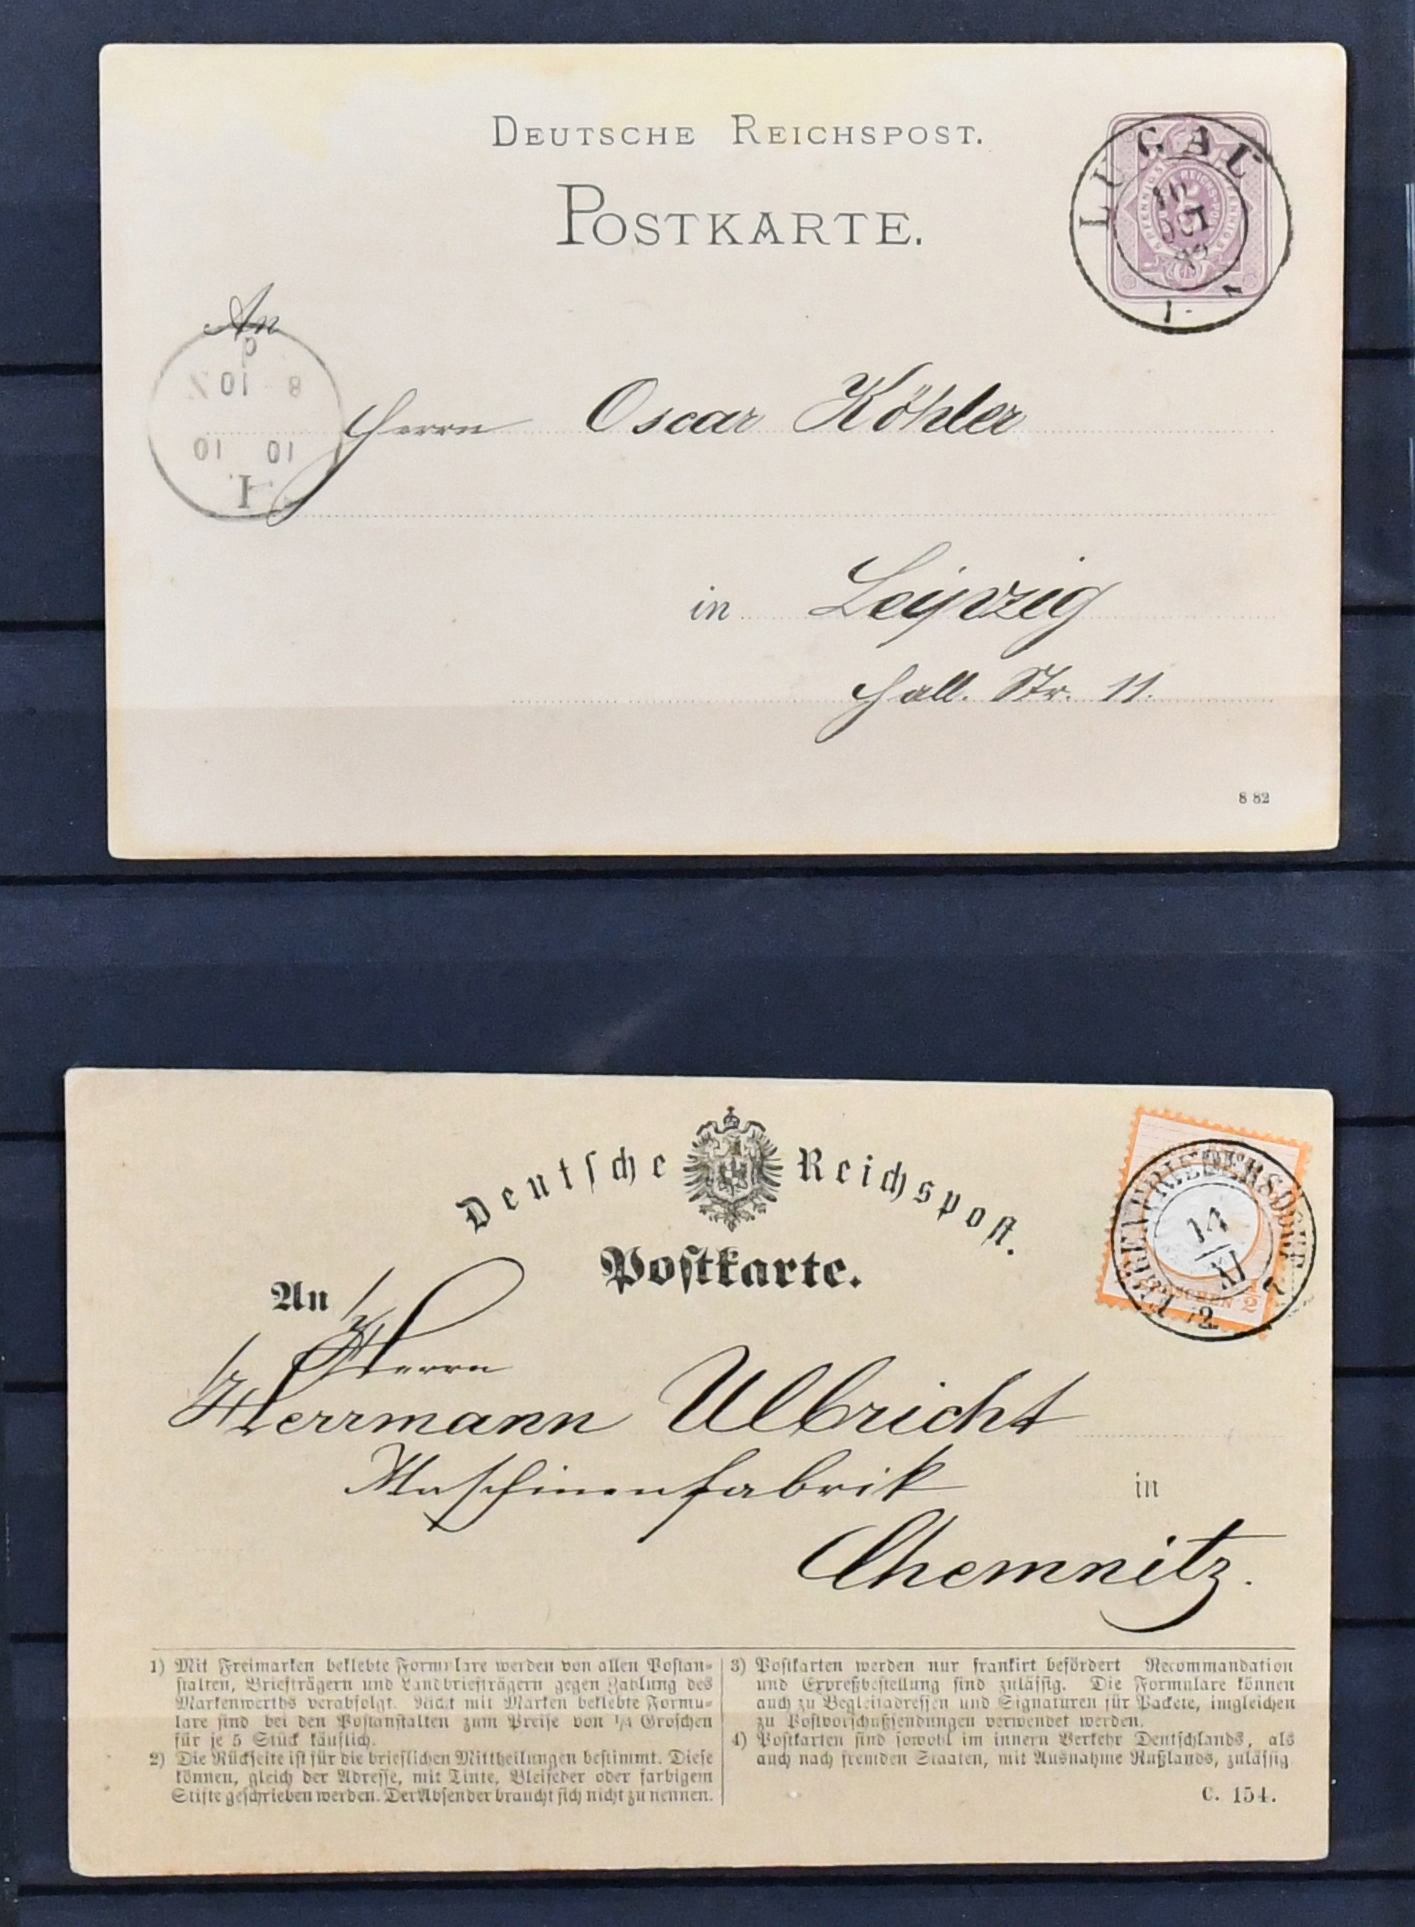 DEUTSCHE REICHSPOST.
POSTKARTE.
LUGAU
10
OCT
An
8 10
10 10
Herrn Oscar Köhler
in Leipzig
Hall. Str. 11.
8 82
Deutsche Reichspost.
Postkarte.
14
XI
An
Herrn
Herrmann Ulbricht
Maschinenfabrik in
Chemnitz.
1) Mit Freimarken beklebte Formulare werden von allen Postan-
stalten, Briefträgern und Landbriefträgern gegen Zahlung des
Markenwerths verabfolgt. Nicht mit Marken beklebte Formu-
lare sind bei den Postanstalten zum Preise von 1/4 Groschen
für je 5 Stück käuflich.
2) Die Rückseite ist für die brieflichen Mittheilungen bestimmt. Diese
können, gleich der Adresse, mit Tinte, Bleifeder oder farbigem
Stifte geschrieben werden. Der Absender braucht sich nicht zu nennen.
3) Postkarten werden nur frankirt befördert Recommandation
und Expreßbestellung sind zulässig. Die Formulare können
auch zu Begleitadressen und Signaturen für Packete, imgleichen
zu Postvorschußsendungen verwendet werden.
4) Postkarten sind sowohl im innern Verkehr Deutschlands, als
auch nach fremden Staaten, mit Ausnahme Rußlands, zulässig
C. 154.